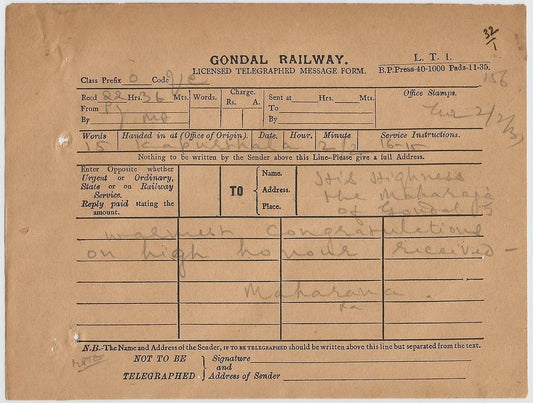 32/1
GONDAL RAILWAY.
LICENSED TELEGRAPHED MESSAGE FORM.
L. T. 1.
B.P.Press-40-1000 Pads-11-35.
156
Class Prefix O Code
Recd 22 Hrs. 36 Mts.
Words.
Charge.
Rs. A.
Sent at Hrs. Mts.
Office Stamps.
From
To
By
By
2/2/37
Words
Handed in at (Office of Origin).
Date.
Hour.
Minute
Service Instructions.
15 Kapurthala 2/2 16-15
Nothing to be written by the Sender above this Line-Please give a full Address.
Enter Opposite whether
Urgent or Ordinary,
State or on Railway
Service.
Reply paid stating the
amount.
TO
Name.
Address.
Place.
His Highness
the Maharaja
of Gondal
warmest congratulations
on high honour received -
Maharana
N.B.-The Name and Address of the Sender, IF TO BE TELEGRAPHED should be written above this line but separated from the text.
NOT TO BE
TELEGRAPHED
Signature
and
Address of Sender